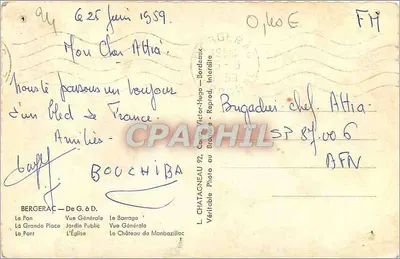 Le 25 Juin 1959.
0,40 E
FM
Mon Cher Attia.
BERGERAC
d'un Bled de France.
Amitiés.
BOUCHIBA
Brigadier chef. Attia.
SP 87.006
AFN
CPARPHIL
L. CHATAGNEAU 92, Cours Victor-Hugo - Bordeaux
Véritable Photo au Bromure - Reprod. Interdite
BERGERAC — De G. à D.
Le Pan Vue Générale Le Barrage
La Grande Place Jardin Public Vue Générale
Le Pont L'Église Le Château de Monbazillac